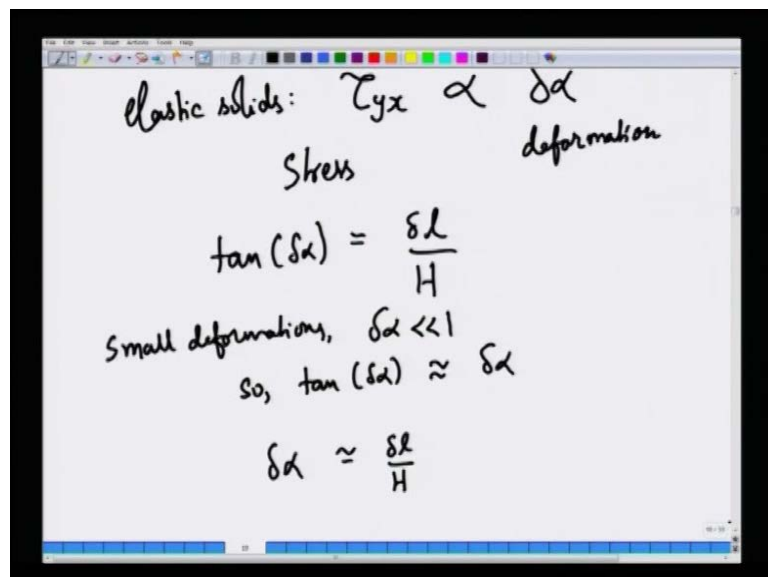 File Edit View Insert Actions Tools Help
Elastic solids: τyx α δα
Stress deformation
tan (δα) = δl / H
Small deformations, δα << 1
so, tan (δα) ≈ δα
δα ≃ δl / H